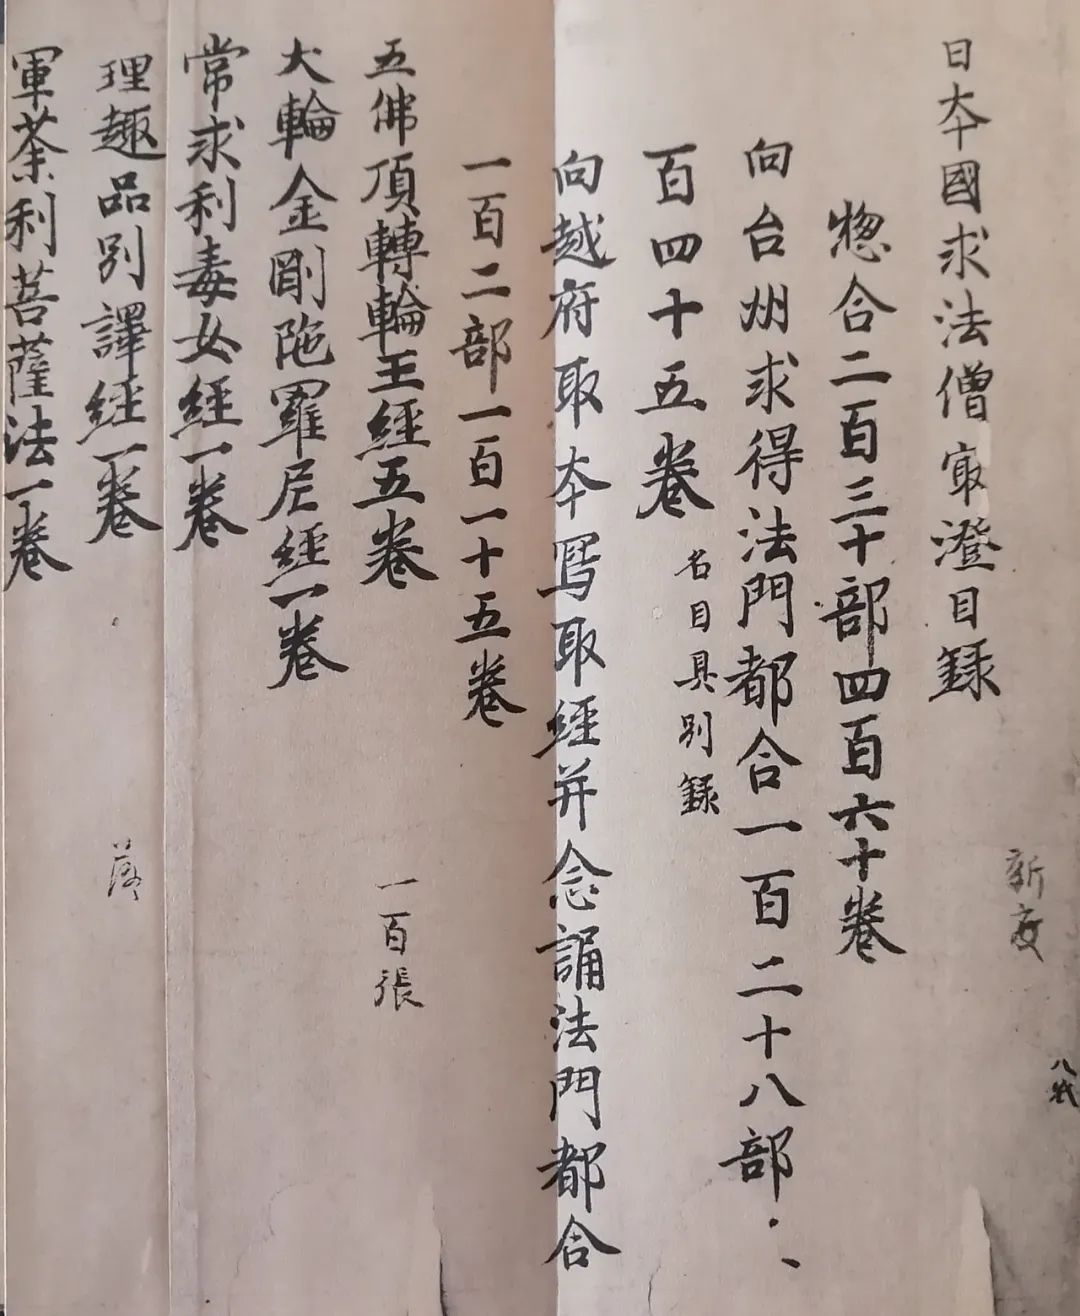 日本國求法僧冣澄目録
惣合二百三十部四百六十卷
向台州求得法門都合一百二十八部、
百四十五卷 名目具別録
向越府取本冩取經并念誦法門都合
一百二部一百一十五卷
五佛頂轉輪王經五卷 一百張
大輪金剛陁羅尼經一卷
常求利毒女經一卷
理趣品別譯經一卷 落
軍荼利菩薩法一卷